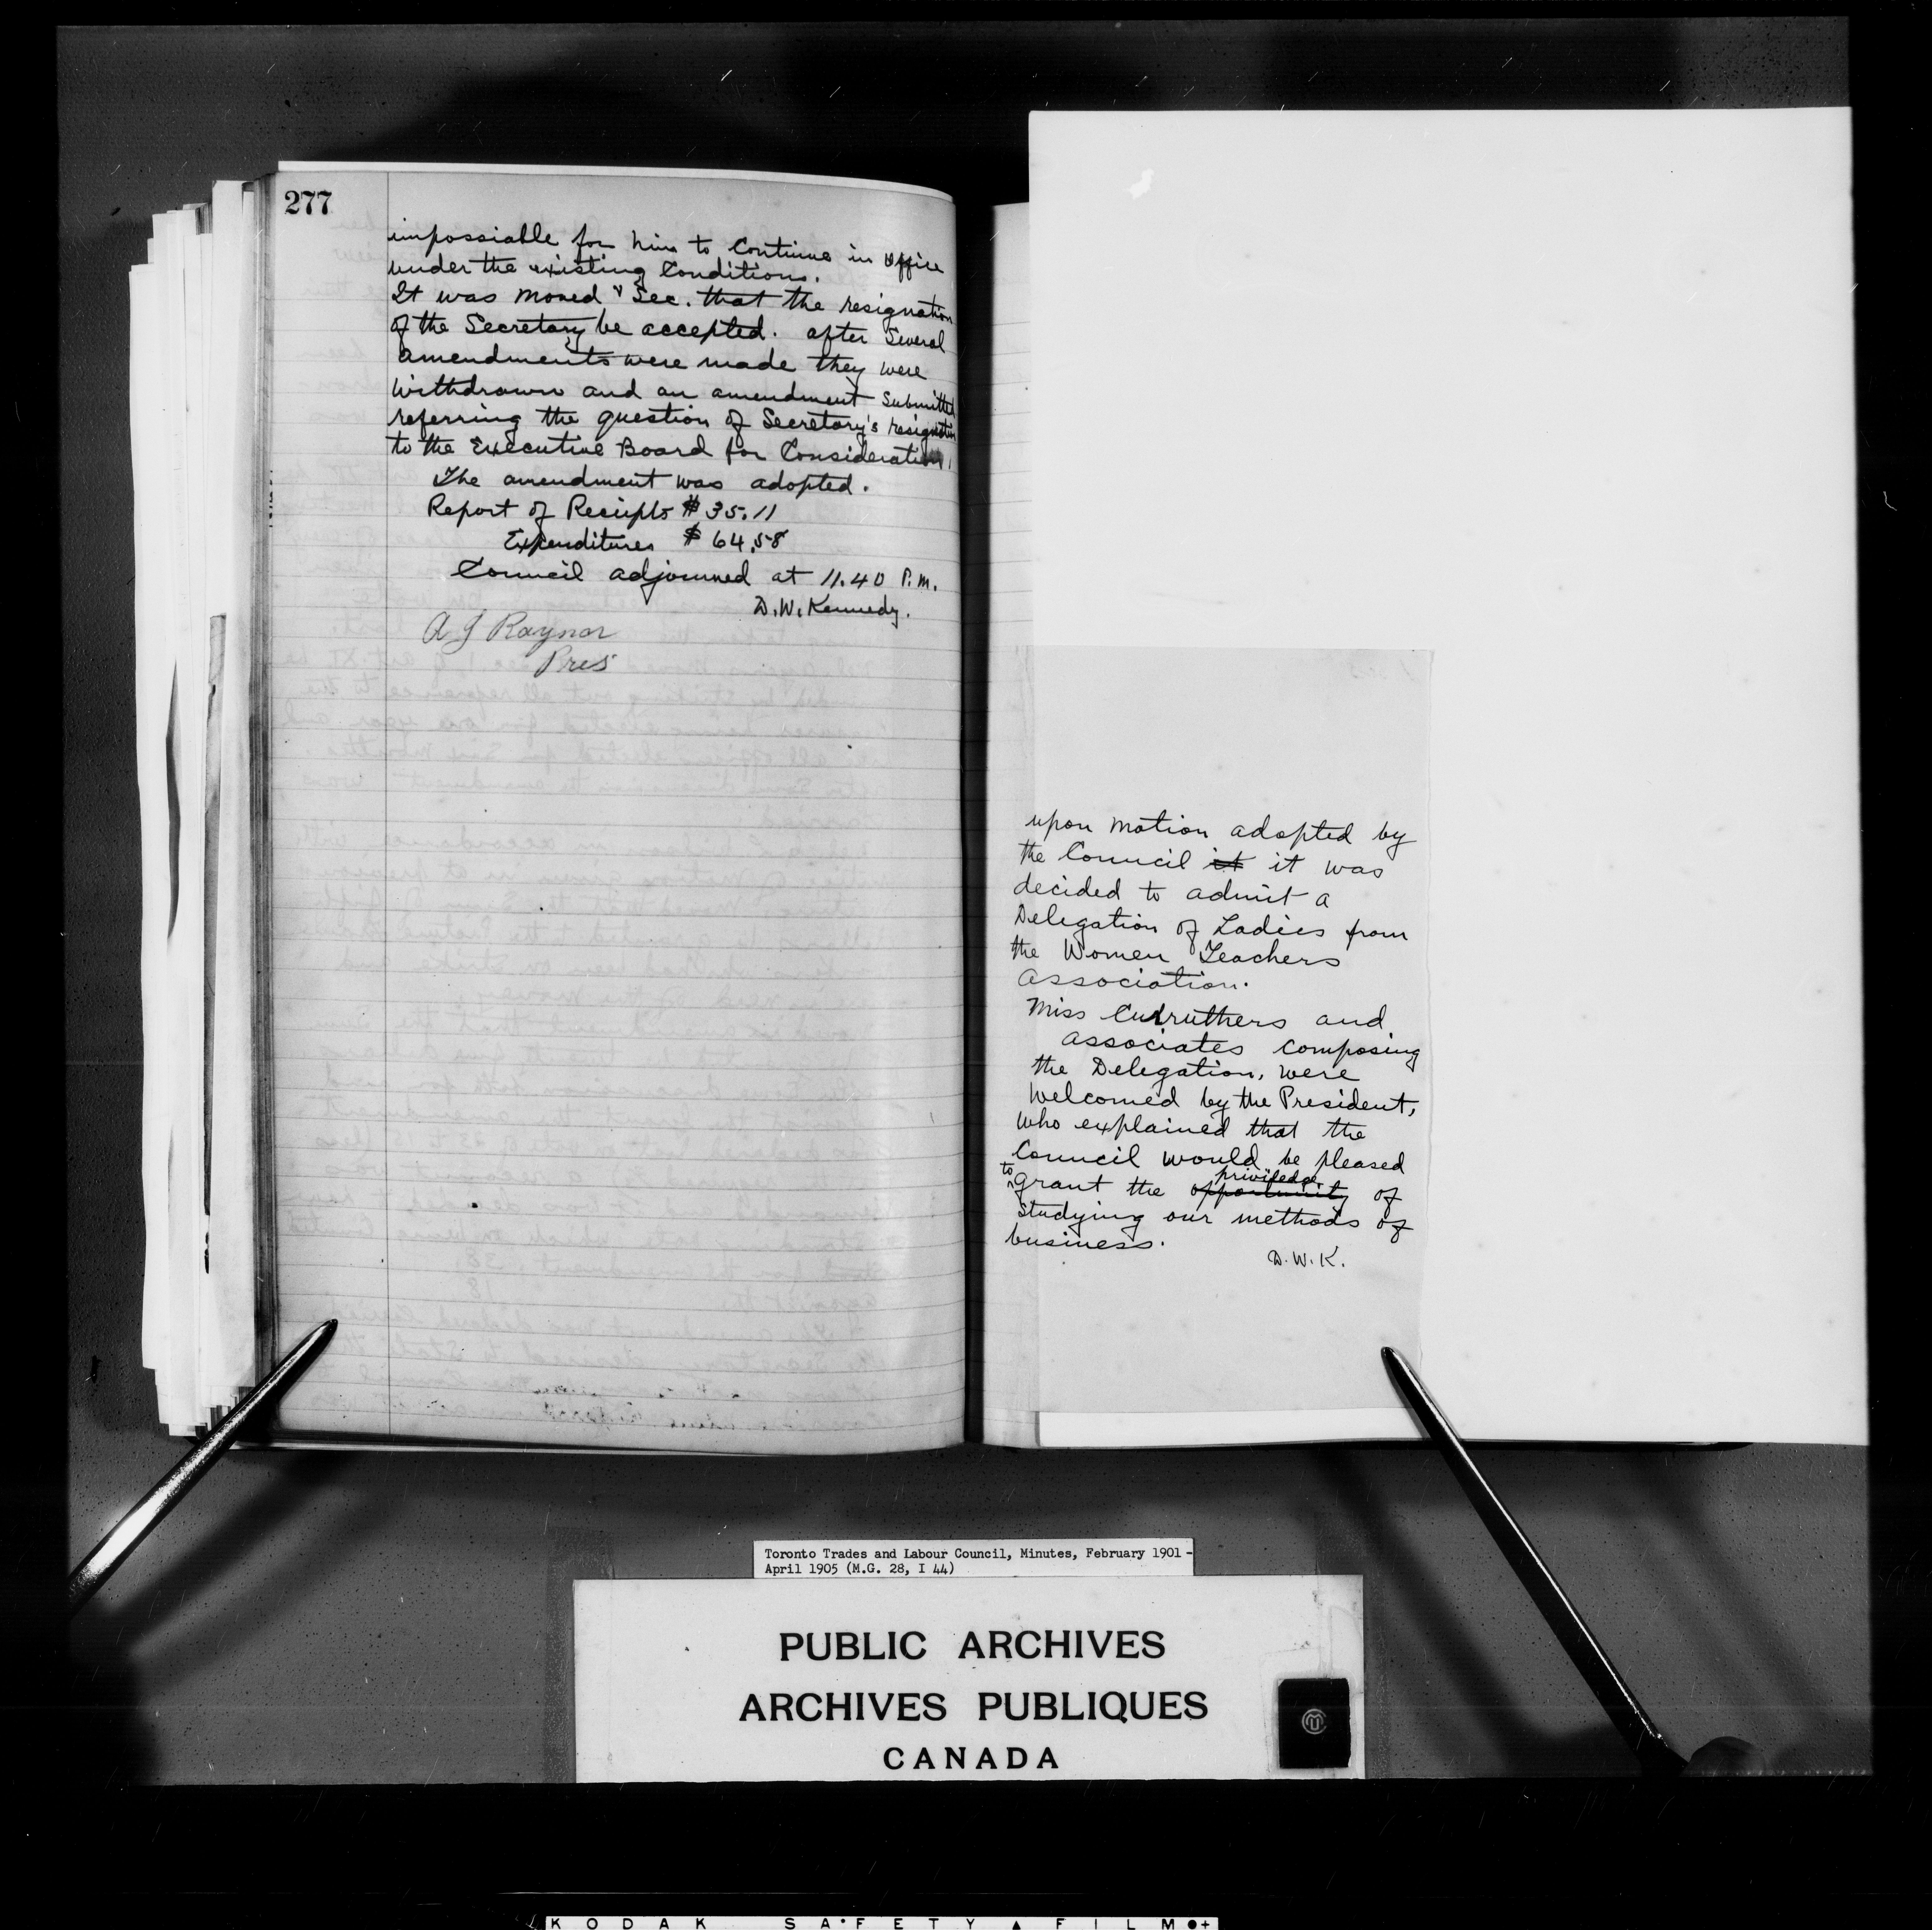 277
impossiable for him to Continue in office
under the existing Conditions.
It was moved & Sec. that the resignation
of the Secretary be accepted. after Several
amendments were made they were
Withdrawn and an amendment Submitted
referring the question of Secretary's resignation
to the Executive Board for Consideration.
The amendment was adopted.
Report of Receipts $ 35.11
Expenditures $ 64.58
Council adjourned at 11.40 P.M.
D.W. Kennedy.
A J Raynor
Pres
upon motion adopted by
the Council it it was
decided to admit a
Delegation of Ladies from
the Women Teachers
Association.
Miss Curruthers and
associates composing
the Delegation, were
welcomed by the President,
who explained that the
Council would be pleased
to grant the opportunity priviledge of
studying our methods of
business.
D.W.K.
Toronto Trades and Labour Council, Minutes, February 1901 -
April 1905 (M.G. 28, I 44)
PUBLIC ARCHIVES
ARCHIVES PUBLIQUES
CANADA
KODAK SAFETY FILM